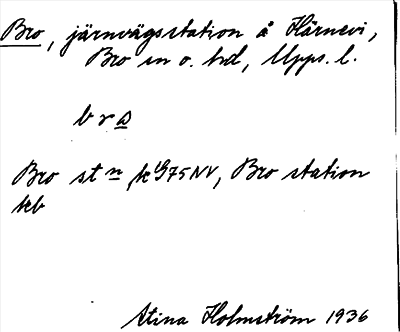 Bro, järnvägsstation å Härnevi,
Bro sn o. hd, Upps. l.
b r ω
Bro st n k G75NV, Bro station
tkb
Stina Holmström 1936